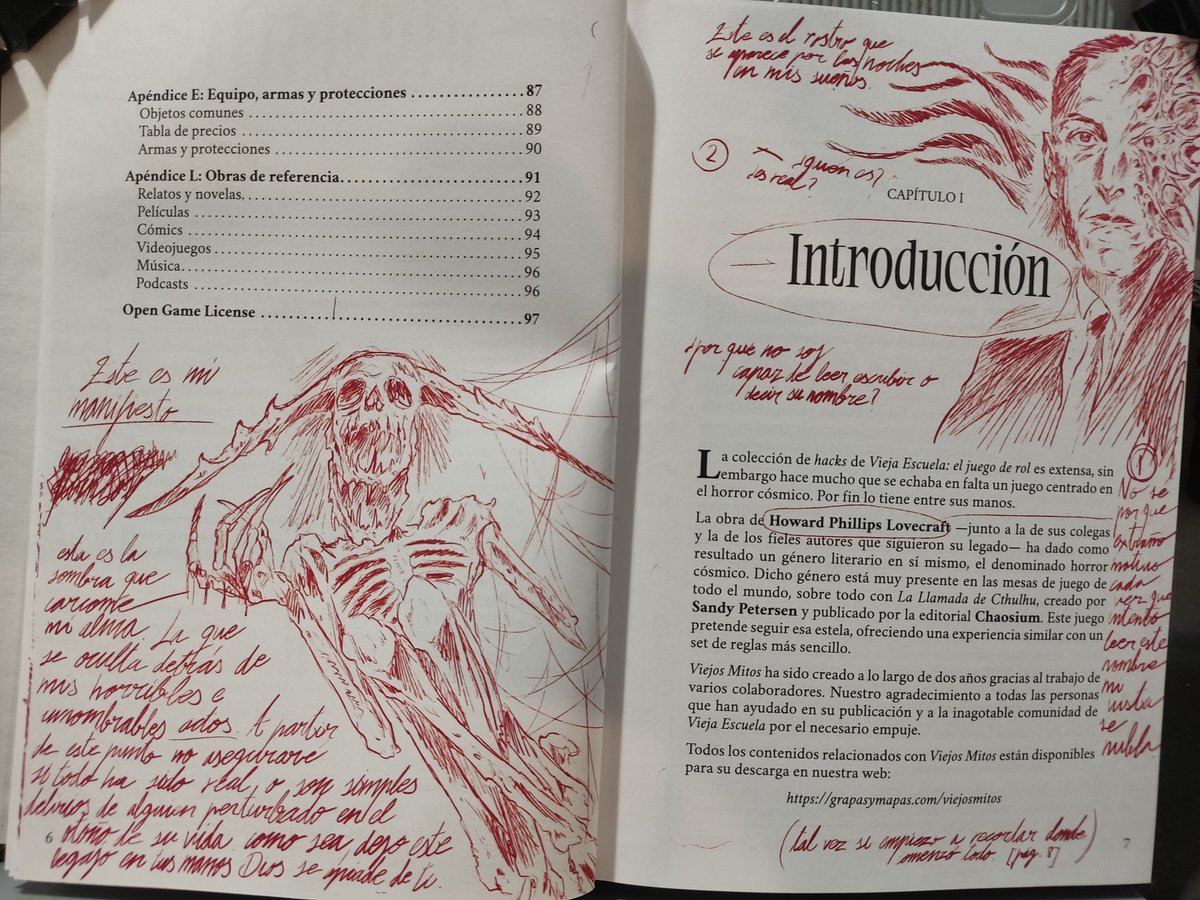 Apéndice E: Equipo, armas y protecciones .................... 87
Objetos comunes .................... 88
Tabla de precios .................... 89
Armas y protecciones .................... 90
Apéndice L: Obras de referencia.................... 91
Relatos y novelas.................... 92
Películas .................... 93
Cómics .................... 94
Videojuegos .................... 95
Música.................... 96
Podcasts .................... 96
Open Game License .................... 97
Este es mi
manifiesto
esta es la
sombra que
carcome
mi alma. La que
se oculta detrás de
mis horribles e
innombrables actos. A partir
de este punto no aseguraré
si todo ha sido real o son simples
delirios de alguien perturbado en el
otoño de su vida como sea dejo este
legajo en tus manos Dios se apiade de ti.
6
Este es el rostro que
se aparece por las noches
en mis sueños.
2
¿quien es?
¿es real?
CAPÍTULO I
Introducción
¿por que no soy
capaz de leer escribir o
decir su nombre?
La colección de hacks de Vieja Escuela: el juego de rol es extensa, sin
embargo hace mucho que se echaba en falta un juego centrado en
el horror cósmico. Por fin lo tiene entre sus manos.
La obra de Howard Phillips Lovecraft —junto a la de sus colegas
y la de los fieles autores que siguieron su legado— ha dado como
resultado un género literario en sí mismo, el denominado horror
cósmico. Dicho género está muy presente en las mesas de juego de
todo el mundo, sobre todo con La Llamada de Cthulhu, creado por
Sandy Petersen y publicado por la editorial Chaosium. Este juego
pretende seguir esa estela, ofreciendo una experiencia similar con un
set de reglas más sencillo.
Viejos Mitos ha sido creado a lo largo de dos años gracias al trabajo de
varios colaboradores. Nuestro agradecimiento a todas las personas
que han ayudado en su publicación y a la inagotable comunidad de
Vieja Escuela por el necesario empuje.
Todos los contenidos relacionados con Viejos Mitos están disponibles
para su descarga en nuestra web:
https://grapasymapas.com/viejosmitos
1
No se
por que
extraño
motivo
cada
vez que
intento
leer este
nombre
mi
vista
se
nubla
(tal vez si empiezo a recordar donde
comenzo todo. [pág. 8])
7